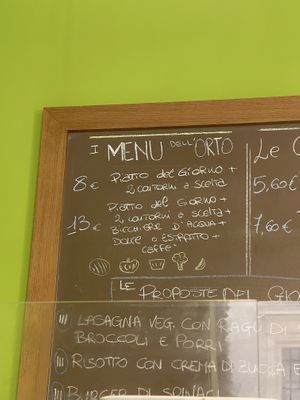 I MENU DELL'ORTO
8€ PIATTO DEL GIORNO +
2 CONTORNI A SCELTA
PIATTO DEL GIORNO +
2 CONTORNI A SCELTA +
13€ BICCHIERE D'ACQUA +
DOLCE O ESTRATTO +
CAFFE'
LE
5,60€
7,60€
LE PROPOSTE DEL
LASAGNA VEG. CON RAGÙ DI
BROCCOLI E PORRI
RISOTTO CON CREMA DI ZUCCA E
BURGER DI SPINACI